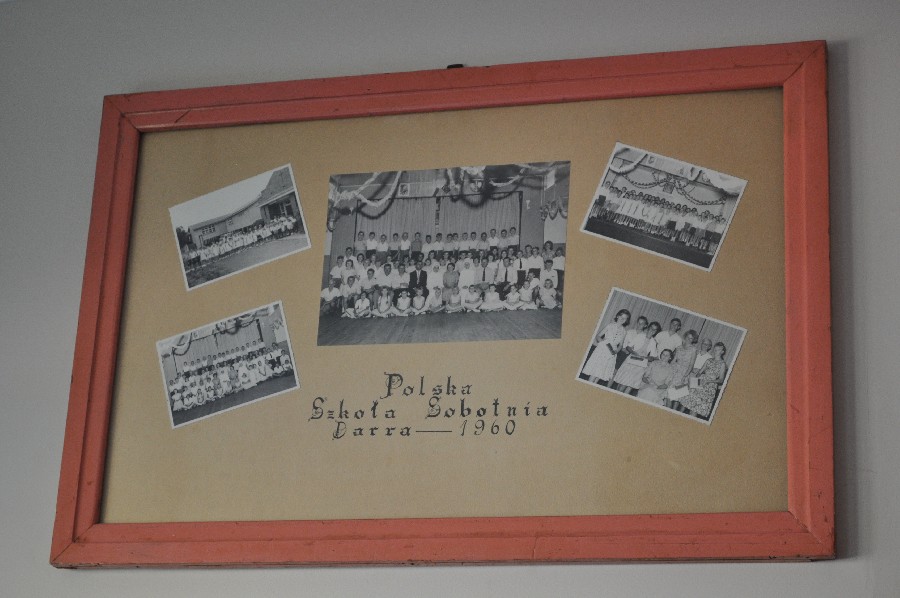 Polska
Szkoła Sobotnia
Darra — 1960